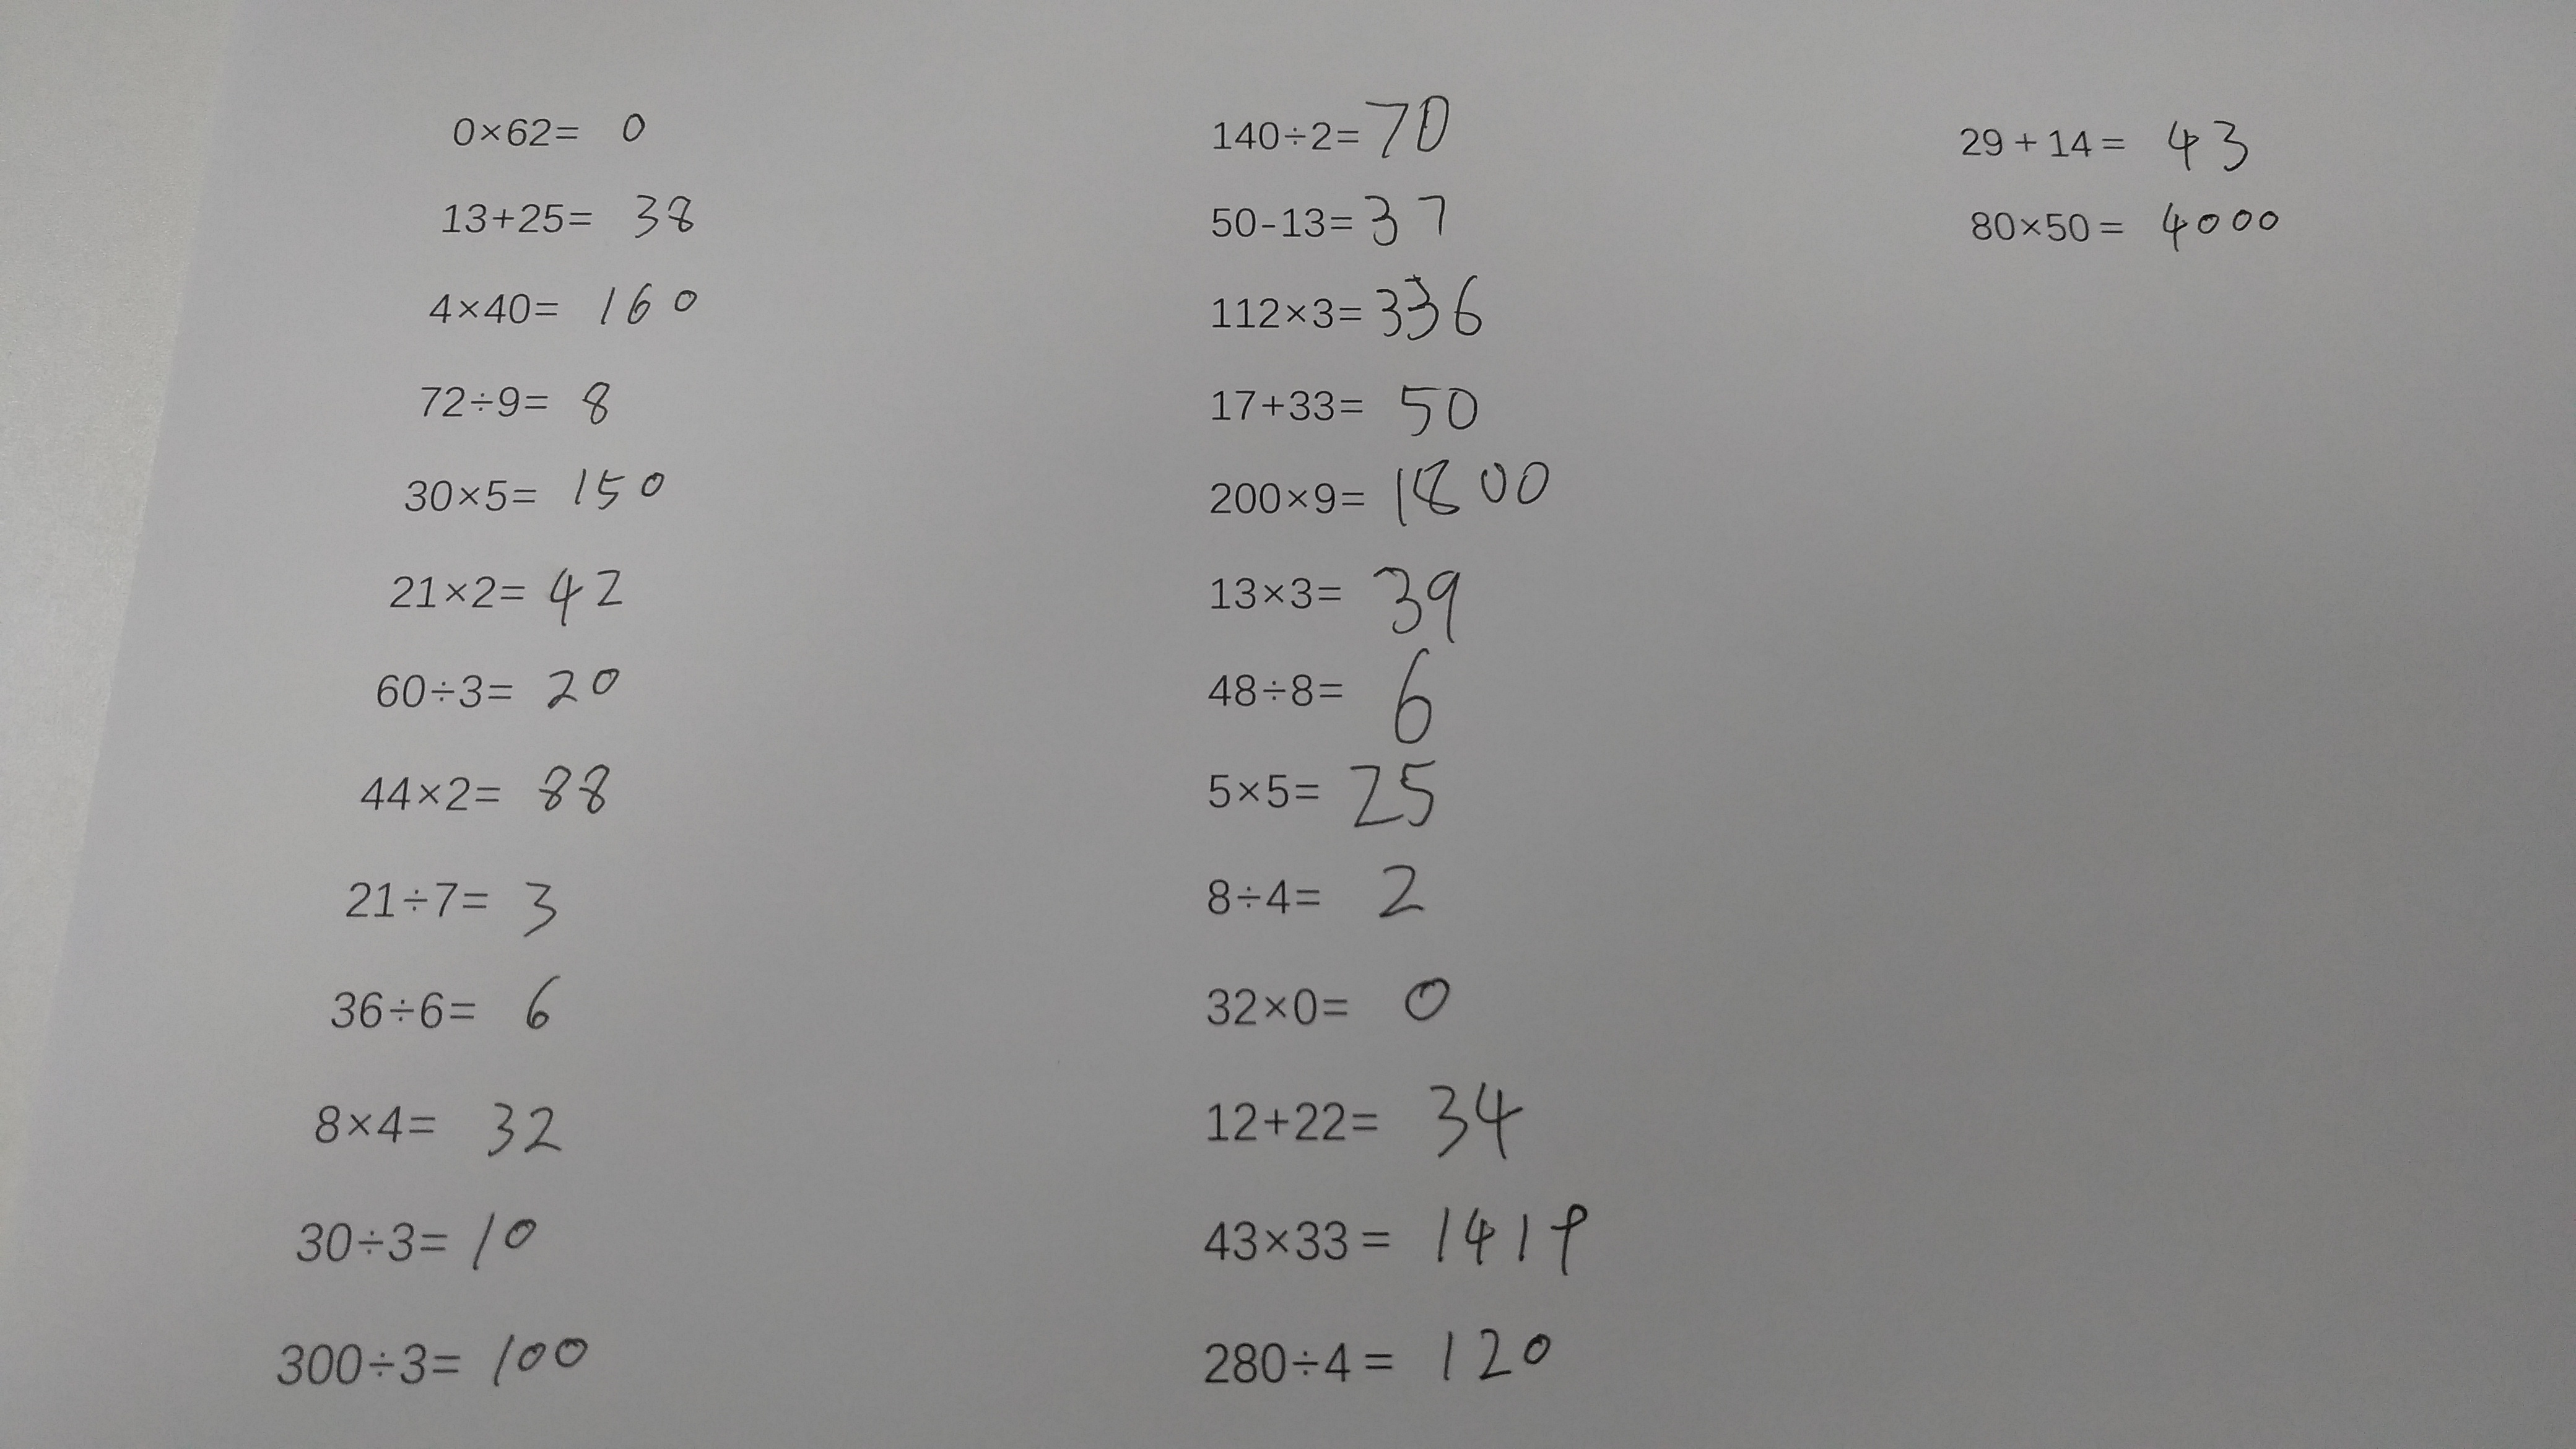 0×62= 0
13+25= 38
4×40= 160
72÷9= 8
30×5= 150
21×2= 42
60÷3= 20
44×2= 88
21÷7= 3
36÷6= 6
8×4= 32
30÷3= 10
300÷3= 100
140÷2= 70
50-13= 37
112×3= 336
17+33= 50
200×9= 1800
13×3= 39
48÷8= 6
5×5= 25
8÷4= 2
32×0= 0
12+22= 34
43×33= 1419
280÷4= 120
29+14= 43
80×50= 4000